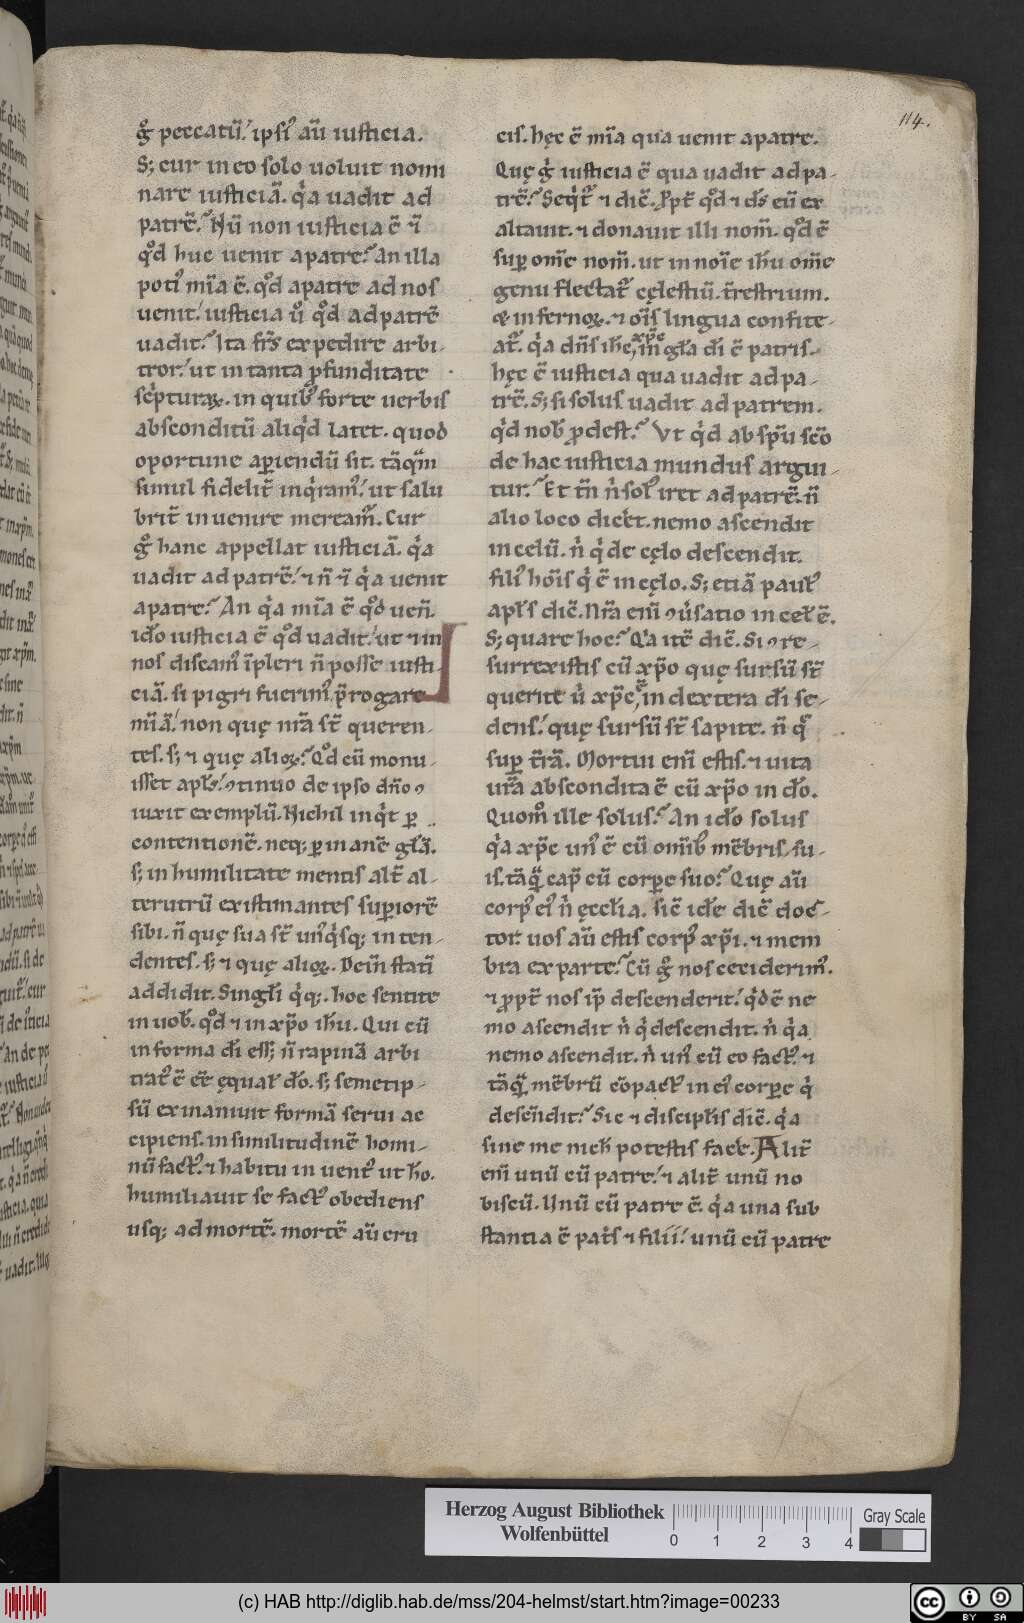 114.
g° peccatū! ipsi' aū iusticia.
S; cur in eo solo uoluit nomi
nare iusticiā. q̇a uadit ad
patrē.? Nū non iusticia ē ⁊̄
q°d huc uenit a patre? An illa
poti' mīa ē. q°d a patre ad nos
uenit! iusticia u° q°d ad patrē
uadit? Ita fr̄s expedire arbi-
tror! ut in tanta ꝓfunditate
sċpturaꝝ. in quib' forte uerbis
absconditū aliq̇d latet. quod
oportune aꝑiendū sit. tāq̄m
simul fidelit̄ inq̇ram'! ut salu
brit̄ inuenire meream̄. Cur
g° hanc appellat iusticiā. q̇a
uadit ad patrē! ⁊ n̄ ⁊̄ q̇a uenit
a patre? An q̇a mīa ē q°d ueñ.
id̄o iusticia ē q°d uadit! ut ⁊ in
nos discam' īpleri n̄ posse iusti-
ciā. si pigri fuerim' p̄rogare
mīā! non quę nr̄a st̄ queren-
tes. s; ⁊ quę alioꝝ? Q°d cū monu-
isset apłs! ꝯtinuo de ipso dño ꝯ
iuxit exemplū. Nichil inq̇t ꝑ
contentionē. neq; ꝑ inanē głā.
s; in humilitate mentis alt̄ al-
terutrū existimantes suꝑiorē
sibi. n̄ quę sua st̄ un'q̇sq; in ten-
dentes. s; ⁊ quę alioꝝ. Dein̄ statī
addidit. Singłi q̇q;. hoc sentite
in uob̄. q°d ⁊ in xp̄o ih̄u. Qui cū
in forma d̄i ess; n̄ rapinā arbi
trat' ē eē ęqual' d̄o. s; semetip-
sū exinaniuit formā serui ac
cipiens. in similitudinē homi-
nū fact'. ⁊ habitu inuent' ut h̄o.
humiliauit se fact' obediens
usq; ad mortē. mortē aū cru
cis. hęc ē mīa qua uenit a patre.
Quę g̊ iusticia ē qua uadit ad pa-
trē? Seq̇t̄ ⁊ dic̄. ꝓpt̄ q°d ⁊ d̄s eū ex
altauit. ⁊ donauit illi nom̄. q°d ē
suꝑ om̄e nom̄. ut in noīe ih̄u om̄e
genu flectat̄ cęlestiū. t̄restrium.
& infernoꝝ. ⁊ oīs lingua confite-
at̄. q̇a dn̄s ih̄c xp̄c in gła d̄i ē patris.
hęc ē iusticia qua uadit ad pa-
trē. S; si solus uadit ad patrem.
q̇d nob̄ ꝓdest? Vt q̇d ab sp̄u sc̄o
de hac iusticia mundus argui-
tur? Et tn̄ ṅ sol' iret ad patrē. n̄
alio loco dicet. nemo ascendit
in celū. ṅ q̇ de cęlo descendit.
fili' hoīs q̇ ē in cęlo. S; etiā paul'
apłs dic̄. Nr̄a eni ꝯu̇satio in cel' ē.
S; quare hoc? Q'a itē dic̄. Si ꝯre-
surrexistis cū xp̄o quę sursū st̄
querite u̇ xp̄c ē in dextera d̄i se-
dens! quę sursū st̄ sapite. n̄ q̄
suꝑ t̄rā. Mortui eni estis. ⁊ uita
ur̄a abscondita ē cū xp̄o in d̄o.
Quom° ille solus? An id̄o solus
q̇a xp̄c un' ē cū om̄ib' mēbris su-
is. tāq̄ cap̄ cū corꝑe suo? Quę aū
corp' ei' ṅ ęcclia. sic̄ idē dic̄ doc-
tor. uos aū estis corp' xp̄i. ⁊ mem
bra ex parte? Cū g° nos ceciderim'.
⁊ ꝓpt̄ nos ip̄ descenderit! q̇d ē ne
mo ascendit ṅ q̇ descendit. ṅ q̇a
nemo ascendit. ṅ un' cū eo fact'. ⁊
tāq̄ mēbrū cōpact' in ei' corꝑe q̇
desc̄ndit? Sic ⁊ discipłis dic̄. q̇a
sine me nich̄ potestis face. Alit̄
eni unū cū patre! ⁊ alit̄ unū no
biscū. Unū cū patre ē. q̇a una sub
stantia ē pat̄s ⁊ filii! unū cū patre
Herzog August Bibliothek
Wolfenbüttel
0 1 2 3 4
Gray Scale
(c) HAB http://diglib.hab.de/mss/204-helmst/start.htm?image=00233
cc BY SA